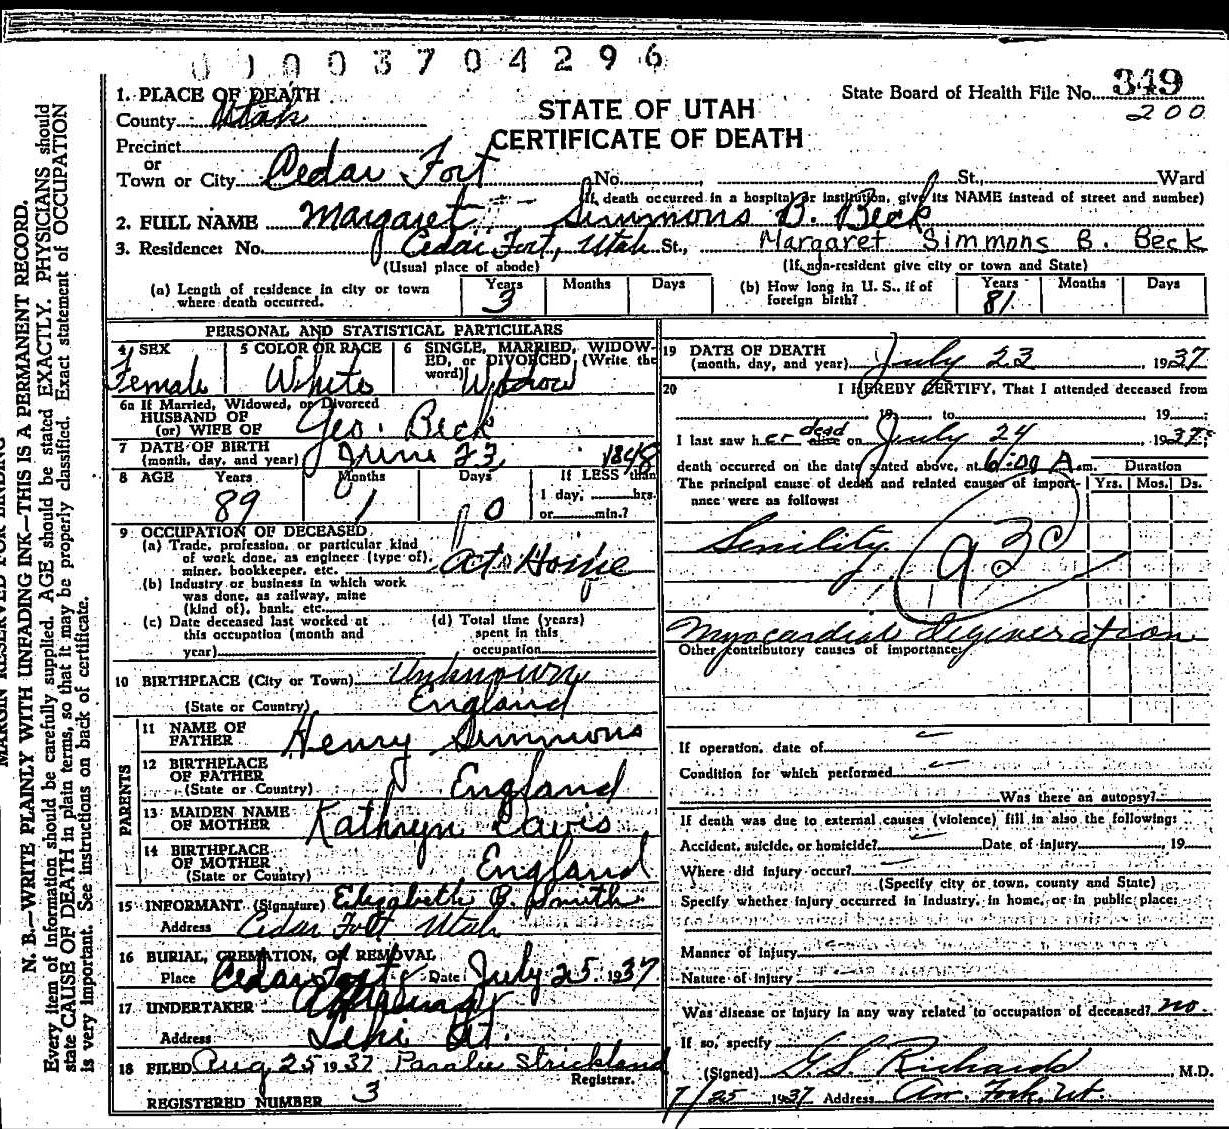 01003704296
State Board of Health File No. 349
200
STATE OF UTAH
CERTIFICATE OF DEATH
1. PLACE OF DEATH
County Utah
Precinct
or
Town or City Cedar Fort No. St., Ward
(If death occurred in a hospital or institution, give its NAME instead of street and number)
2. FULL NAME Margaret Simmons B. Beck
3. Residence: No. Cedar Fort, Utah St., Margaret Simmons B. Beck
(Usual place of abode) (If non-resident give city or town and State)
(a) Length of residence in city or town where death occurred. Years 3 Months Days
(b) How long in U. S., if of foreign birth? Years 81 Months Days
PERSONAL AND STATISTICAL PARTICULARS
4 SEX Female
5 COLOR OR RACE White
6 SINGLE, MARRIED, WIDOW-
ED, or DIVORCED (Write the
word) Widow
6a If Married, Widowed, or Divorced
HUSBAND OF
(or) WIFE OF Geo. Beck
7 DATE OF BIRTH
(month, day, and year) June 23, 1848
8 AGE Years 89 Months 1 Days 0
If LESS than
1 day, hrs.
or min.?
9 OCCUPATION OF DECEASED
(a) Trade, profession, or particular kind
of work done, as engineer (type of),
miner, bookkeeper, etc. At Home
(b) Industry or business in which work
was done, as railway, mine
(kind of), bank, etc.
(c) Date deceased last worked at
this occupation (month and
year)
(d) Total time (years)
spent in this
occupation
10 BIRTHPLACE (City or Town) Unknown
(State or Country) England
PARENTS
11 NAME OF
FATHER Henry Simmons
12 BIRTHPLACE
OF FATHER
(State or Country) England
13 MAIDEN NAME
OF MOTHER Kathryn Davis
14 BIRTHPLACE
OF MOTHER
(State or Country) England
15 INFORMANT (Signature) Elizabeth B. Smith
Address Cedar Fort Utah
16 BURIAL, CREMATION, OR REMOVAL
Place Cedar Fort Date July 25 1937
17 UNDERTAKER
Address Lehi Ut.
18 FILED Aug 25 1937 Paralee Strickland
Registrar.
REGISTERED NUMBER 3
19 DATE OF DEATH
(month, day, and year) July 23 1937
20 I HEREBY CERTIFY, That I attended deceased from
19 to 19 ;
I last saw her dead alive on July 24, 1937;
death occurred on the date stated above, at 6:00 A. m. Duration
The principal cause of death and related causes of import-
ance were as follows: Yrs. Mos. Ds.
Senility
930
Myocardial degeneration
Other contributory causes of importance:
If operation, date of
Condition for which performed
Was there an autopsy?
If death was due to external causes (violence) fill in also the following:
Accident, suicide, or homicide? Date of injury 19
Where did injury occur?
(Specify city or town, county and State)
Specify whether injury occurred in industry, in home, or in public place:
Manner of injury
Nature of injury
Was disease or injury in any way related to occupation of deceased? no
If so, specify
(Signed) G. S. Richards, M.D.
7/25 1937 Address Am. Fork, Ut.
MARGIN RESERVED FOR BINDING
N. B.—WRITE PLAINLY WITH UNFADING INK—THIS IS A PERMANENT RECORD.
Every item of information should be carefully supplied. AGE should be stated EXACTLY. PHYSICIANS should
state CAUSE OF DEATH in plain terms, so that it may be properly classified. Exact statement of OCCUPATION
is very important. See instructions on back of certificate.